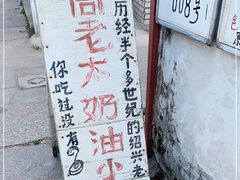 历经半个多世纪的绍兴老
周老太奶油小
你吃过没有
008号